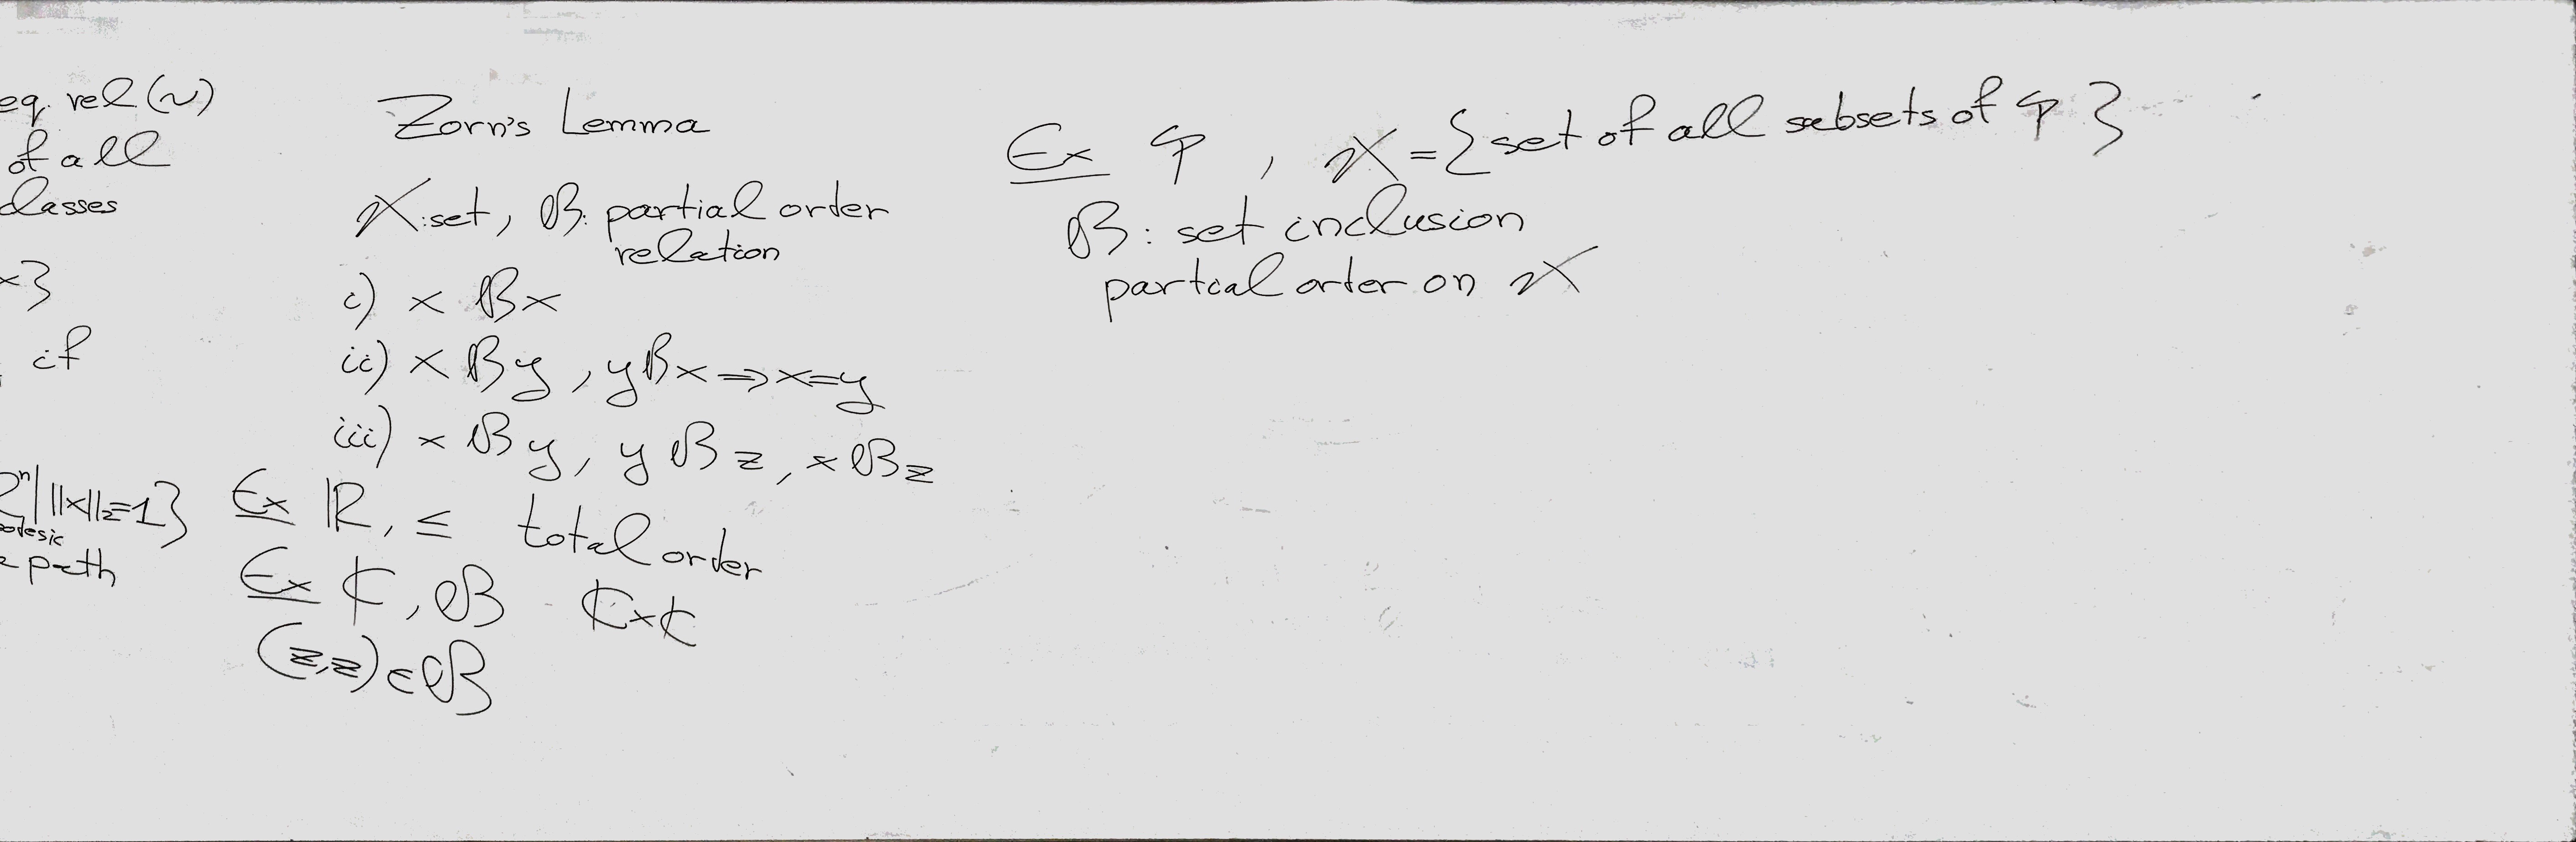 eq. rel (~)
of all
classes
x}
if
R^n | ||x||_2 = 1}
path
Zorn's Lemma
X: set, B: partial order
relation
i) x B x
ii) x B y, y B x ⇒ x = y
iii) x B y, y B z, x B z
Ex ℝ, ≤ total order
Ex ℂ, B ℂ×ℂ
(z,z) ∈ B
Ex φ, X = {set of all subsets of φ}
B: set inclusion
partial order on X